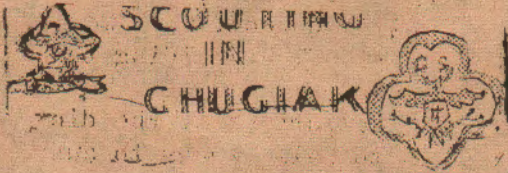 SCOUTING
IN
CHUGIAK
G S